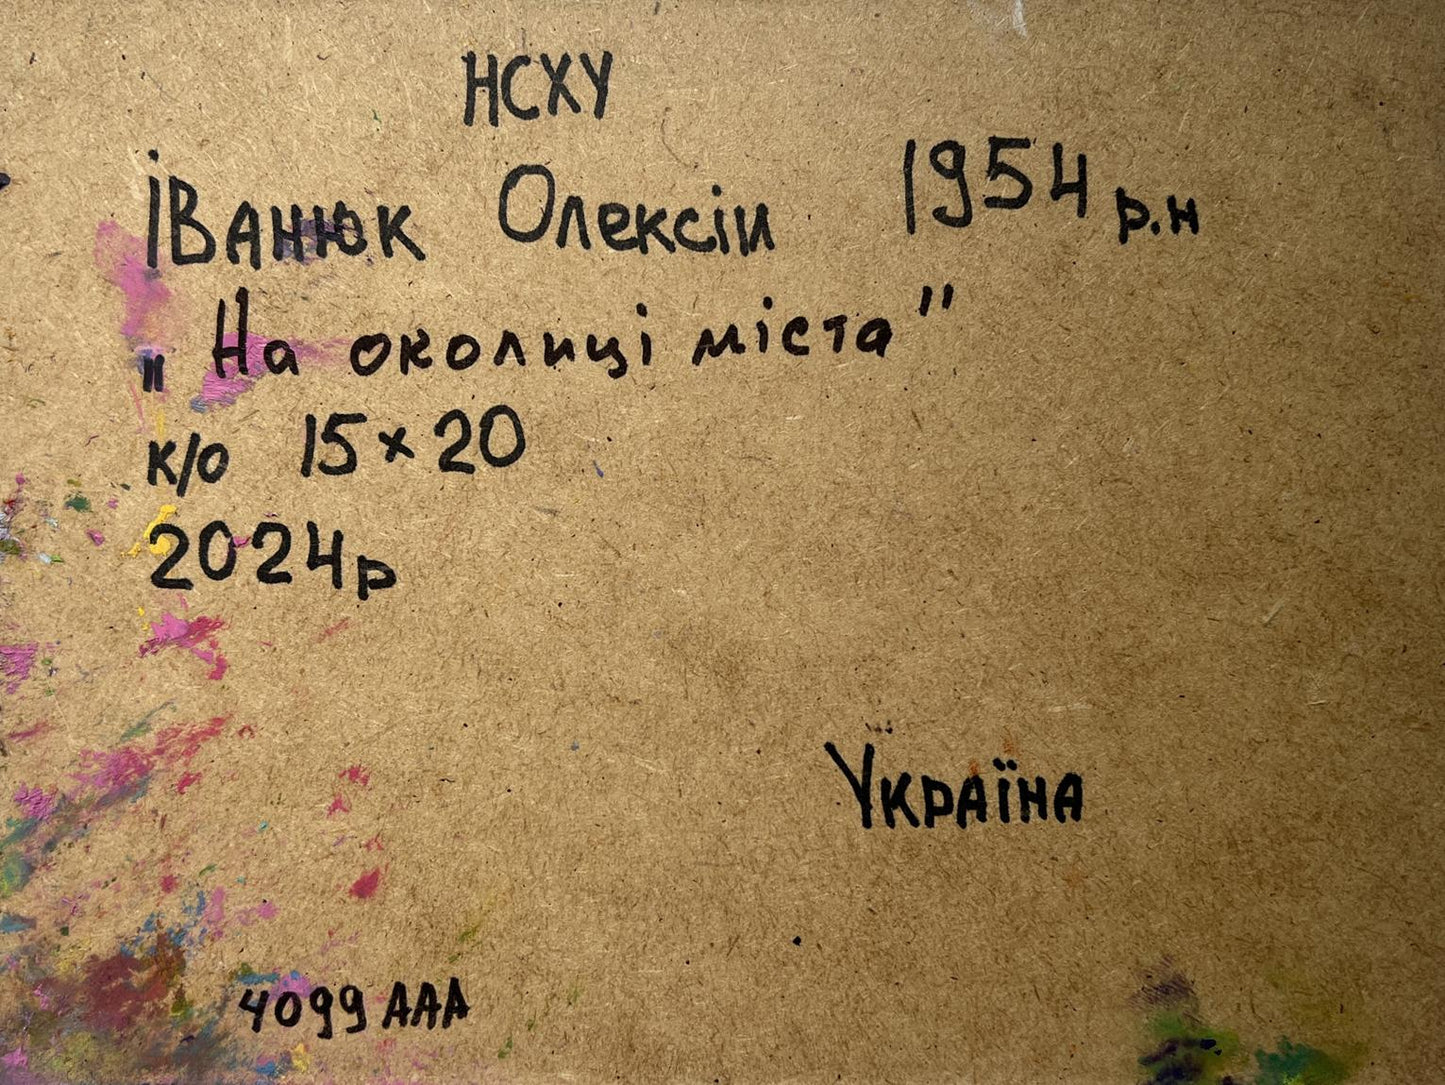 НСХУ
Іванюк Олексій 1954 р.н
„ На околиці міста”
к/о 15×20
2024р
Україна
4099 ААА